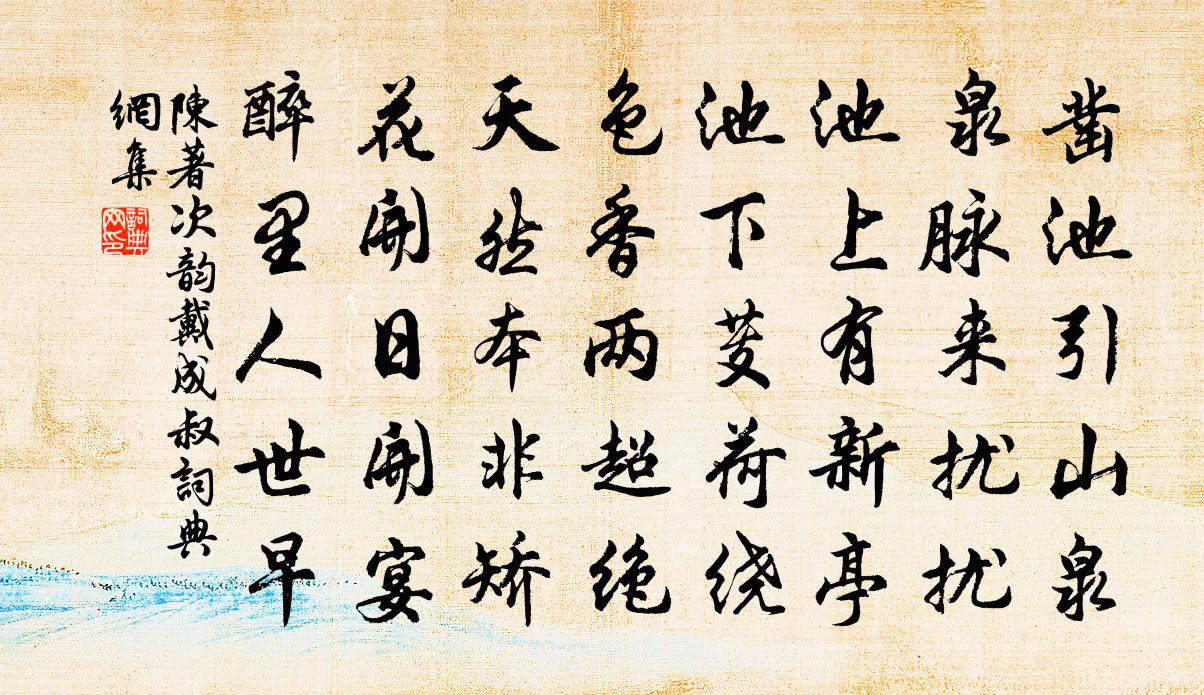 凿池引山泉
泉脉来扰扰
池上有新亭
池下芰荷绕
色香两超绝
天然本非矫
花开日开宴
醉里人世早
陳著次韵戴成叔詞典
網集
詞典
网印